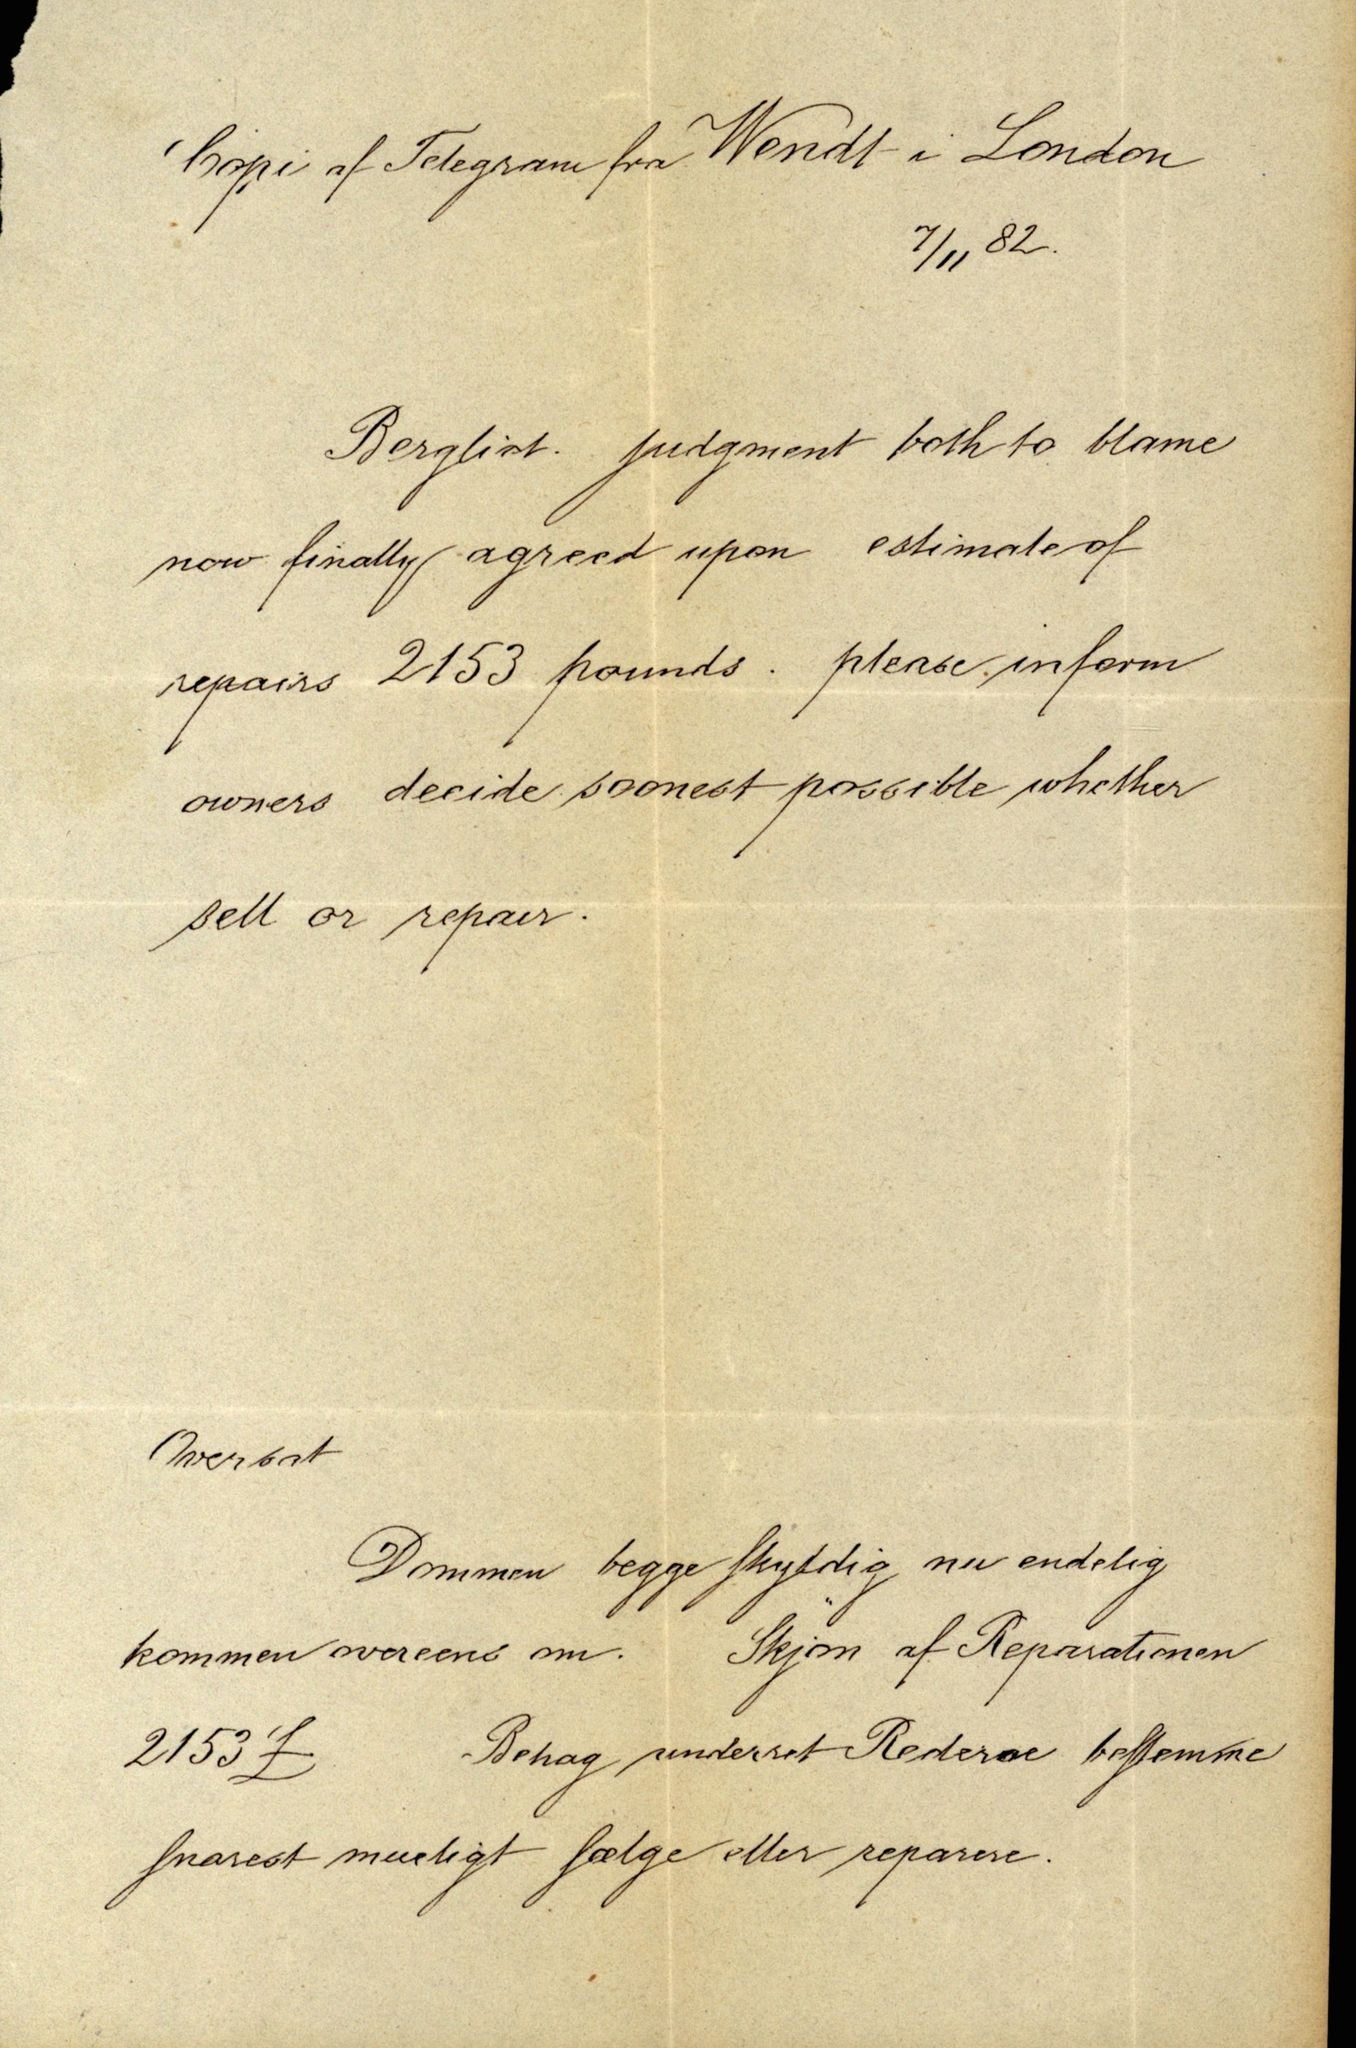 Copi af Telegram fra Wendt i London
7/11 82.
Bergliot. judgment both to blame
now finally agreed upon estimate of
repairs 2153 pounds. please inform
owners decide soonest possible whether
sell or repair.
Oversat
Dommen begge skyldig nu endelig
kommen overeens om. Skjøn af Reparationen
2153 £ Behag underret Rederne bestemme
snarest mueligt sælge eller reparere.